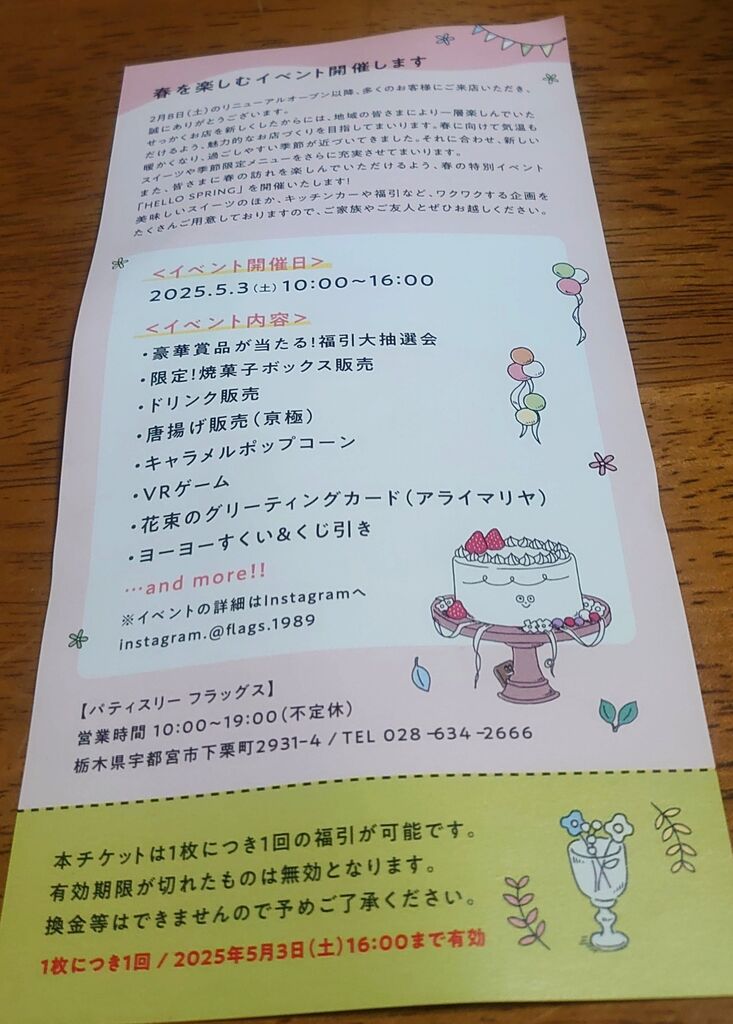 春を楽しむイベント開催します
2月8日(土)のリニューアルオープン以降、多くのお客様にご来店いただき、
誠にありがとうございます。
せっかくお店を新しくしたからには、地域の皆さまにより一層楽しんでいた
だけるよう、魅力的なお店づくりを目指してまいります。春に向けて気温も
暖かくなり、過ごしやすい季節が近づいてきました。それに合わせ、新しい
スイーツや季節限定メニューをさらに充実させてまいります。
また、皆さまに春の訪れを楽しんでいただけるよう、春の特別イベント
「HELLO SPRING」を開催いたします!
美味しいスイーツのほか、キッチンカーや福引など、ワクワクする企画を
たくさんご用意しておりますので、ご家族やご友人とぜひお越しください。
<イベント開催日>
2025.5.3(土)10:00〜16:00
<イベント内容>
・豪華賞品が当たる!福引大抽選会
・限定!焼菓子ボックス販売
・ドリンク販売
・唐揚げ販売(京極)
・キャラメルポップコーン
・VRゲーム
・花束のグリーティングカード(アライマリヤ)
・ヨーヨーすくい&くじ引き
…and more!!
※イベントの詳細はInstagramへ
instagram.@flags.1989
【パティスリー フラッグス】
営業時間 10:00〜19:00(不定休)
栃木県宇都宮市下栗町2931-4 / TEL 028-634-2666
本チケットは1枚につき1回の福引が可能です。
有効期限が切れたものは無効となります。
換金等はできませんので予めご了承ください。
1枚につき1回 / 2025年5月3日(土)16:00まで有効